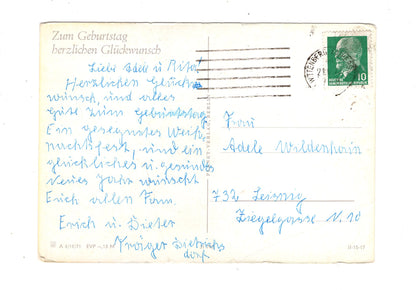 Zum Geburtstag
herzlichen Glückwunsch
Liebe Adele u. Rita!
Herzlichen Glück-
wunsch, und alles
Gute zum Geburtstag.
Ein gesegnetes Weih-
nachtsfest, und ein
glückliches u. gesundes
Neues Jahr wünscht
Euch allen Fam.
Erich u. Dieter
Tröger Dietrichs
dorf
Frau
Adele Wildenhain
732 Leisnig
Ziegelgasse N. 10
10